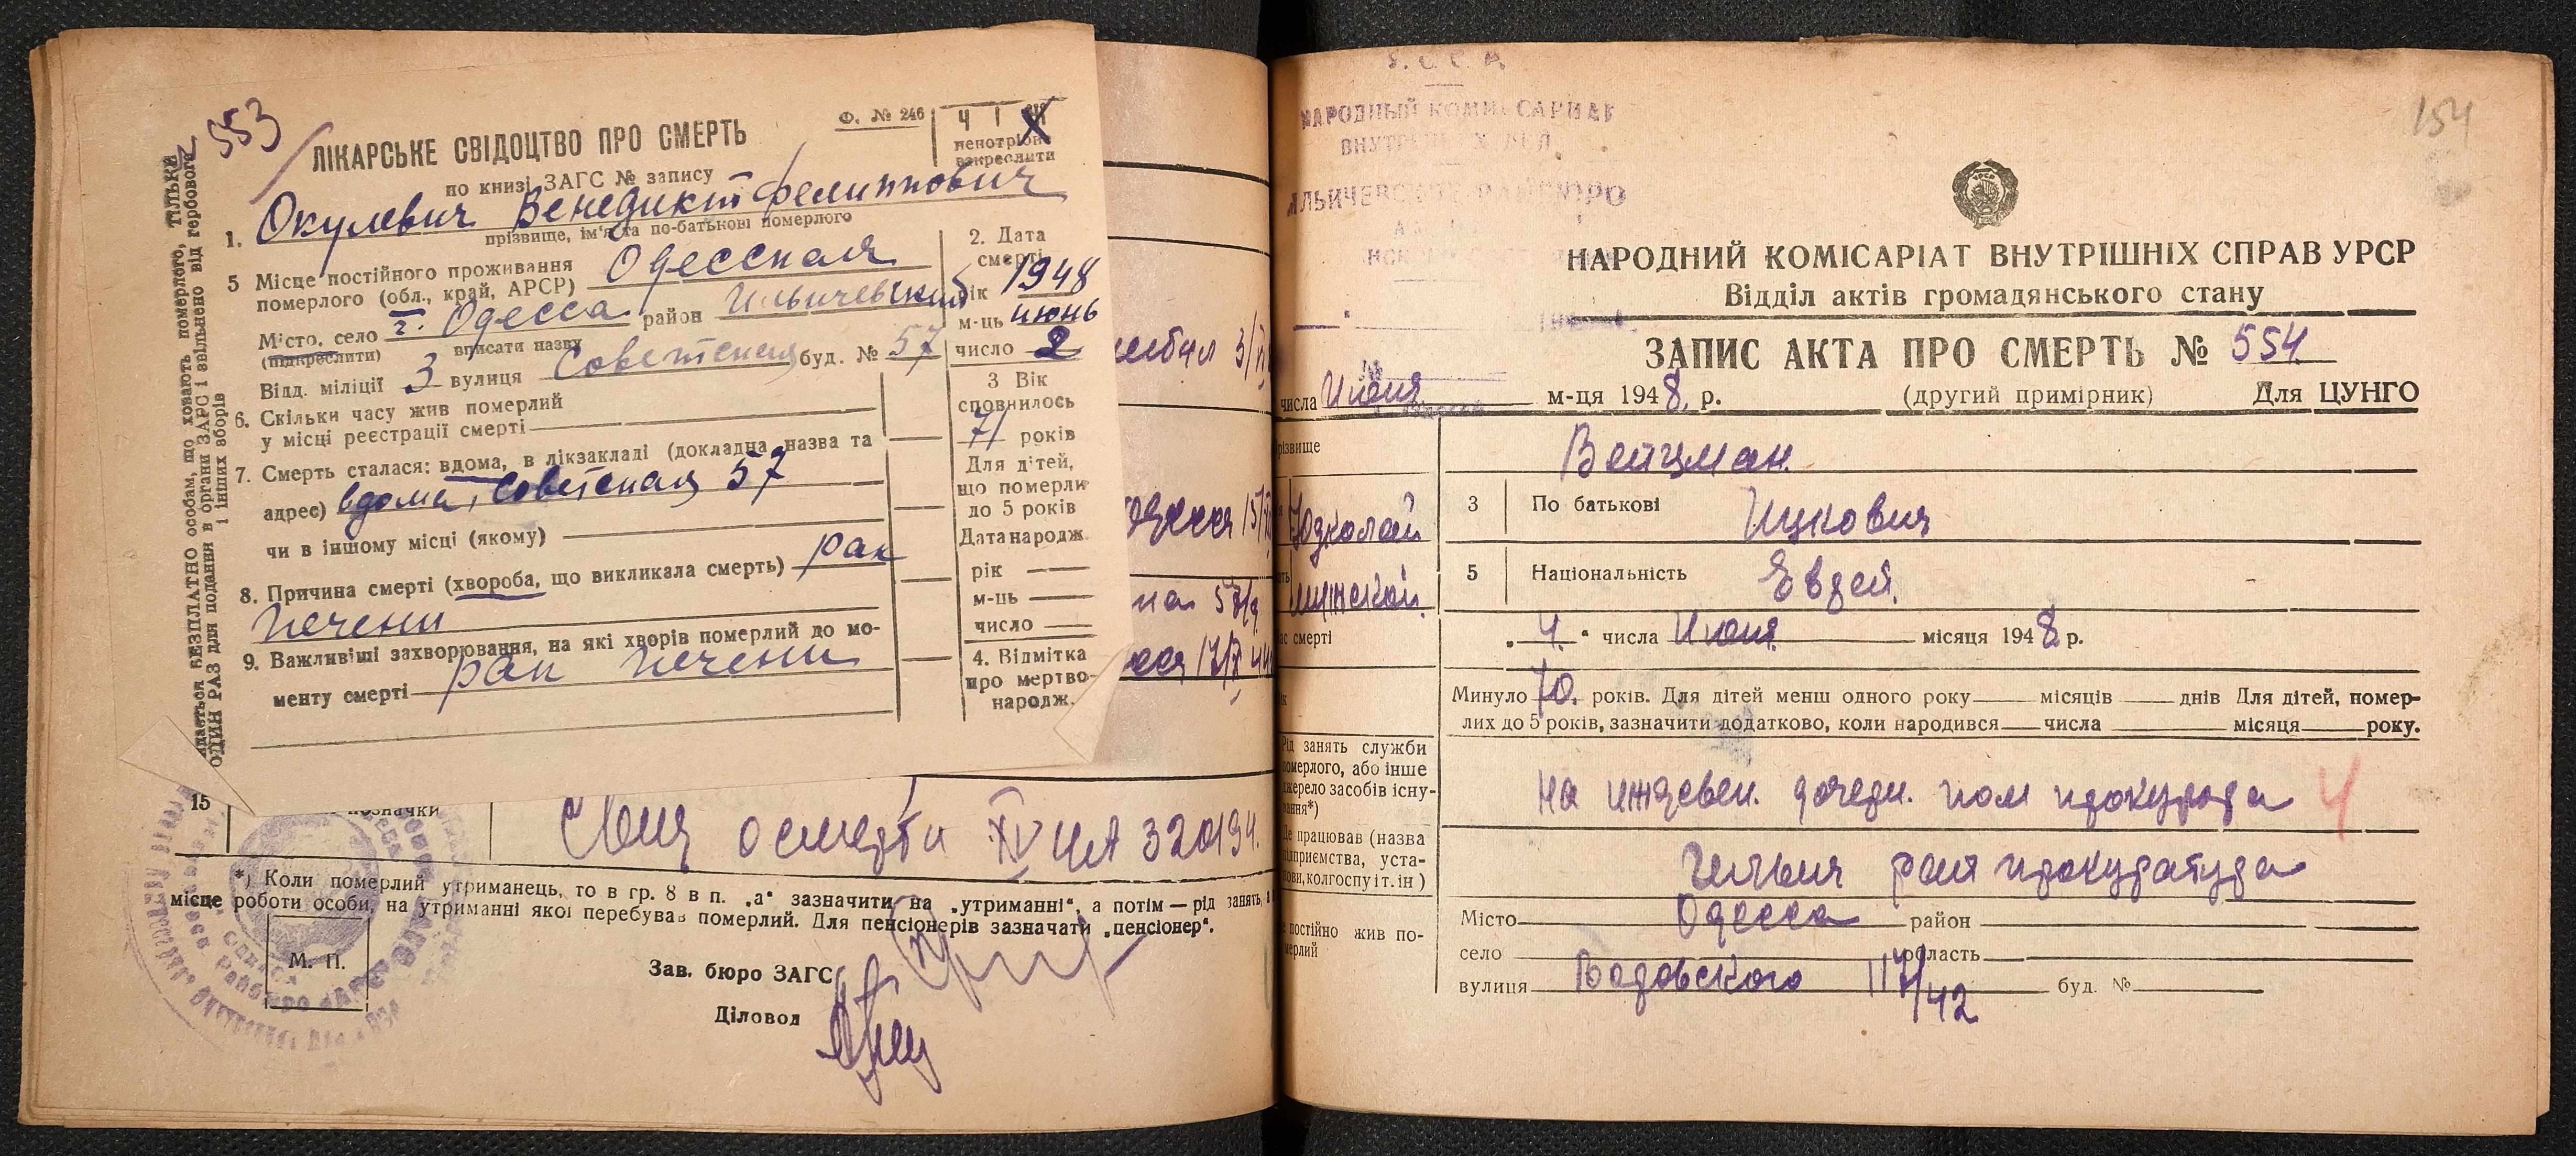 553
Ф. № 246
Ч І
непотрібне
викреслити
ЛІКАРСЬКЕ СВІДОЦТВО ПРО СМЕРТЬ
по книзі ЗАГС № запису
1. Окулевич Венедикт Фелиппович
прізвище, ім'я та по-батькові померлого
5 Місце постійного проживання
померлого (обл., край, АРСР) Одесская
Місто, село г. Одесса район Ильичевский
(підкреслити) вписати назву
Відд. міліції 3 вулиця Советская буд. № 57
6. Скільки часу жив померлий
у місці реєстрації смерті
7. Смерть сталася: вдома, в лікзакладі (докладна назва та
адрес) вдома, Советская 57
чи в іншому місці (якому)
8. Причина смерті (хвороба, що викликала смерть) рак
печени
9. Важливіші захворювання, на які хворів померлий до мо-
менту смерті рак печени
2. Дата
смерті
рік 1948
м-ць июнь
число 2
3 Вік
сповнилось
71 років
Для дітей,
що померли
до 5 років
Дата народж.
рік
м-ць
число
4. Відмітка
про мертво-
народж.
видається БЕЗПЛАТНО особам, що ховають померлого, ТІЛЬКИ
ОДИН РАЗ для подання в органи ЗАГС і звільнено від гербового
і інших зборів
15
позначки
о смерти XIV ЦА 320194.
*) Коли померлий утриманець, то в гр. 8 в п. „а“ зазначити на „утриманні“, а потім — рід занять, а
місце роботи особи, на утриманні якої перебував померлий. Для пенсіонерів зазначати „пенсіонер“.
М. П.
Зав. бюро ЗАГС
Діловод
154
НАРОДНЫЙ КОММИССАРИАТ
ВНУТРЕННИХ ДЕЛ
НАРОДНИЙ КОМІСАРІАТ ВНУТРІШНІХ СПРАВ УРСР
Відділ актів громадянського стану
ЗАПИС АКТА ПРО СМЕРТЬ № 554
числа Июня м-ця 1948 р. (другий примірник) Для ЦУНГО
різвище Вейцман.
3 По батькові Ицкович
5 Національність Еврей.
мужской.
ас смерті „4“ числа Июня місяця 1948 р.
Минуло 70. років. Для дітей менш одного року місяців днів Для дітей, помер-
лих до 5 років, зазначити додатково, коли народився числа місяця року.
Рід занять служби
померлого, або інше
джерело засобів існу-
вання*)
на иждевен. дочери. пом прокурора 4
Де працював (назва
підприємства, уста-
нови, колгоспу і т. ін)
Ильич рай прокуратура
е постійно жив по-
мерлий
Місто Одесса район
село область
вулиця Водовского 117/42 буд. №